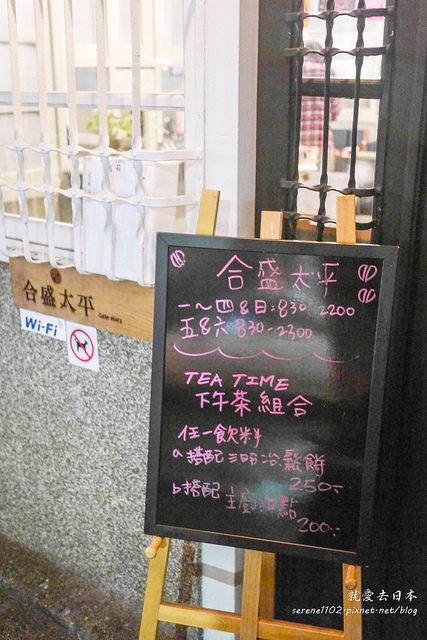 合盛太平
一～四&日:830 2200
五&六 830-2300
TEA TIME
下午茶組合
任一飲料
a搭配三明治鬆餅
250元
b搭配主廚甜點
200元
合盛太平
Wi-Fi
就愛去日本
serene1102.pixnet.net/blog